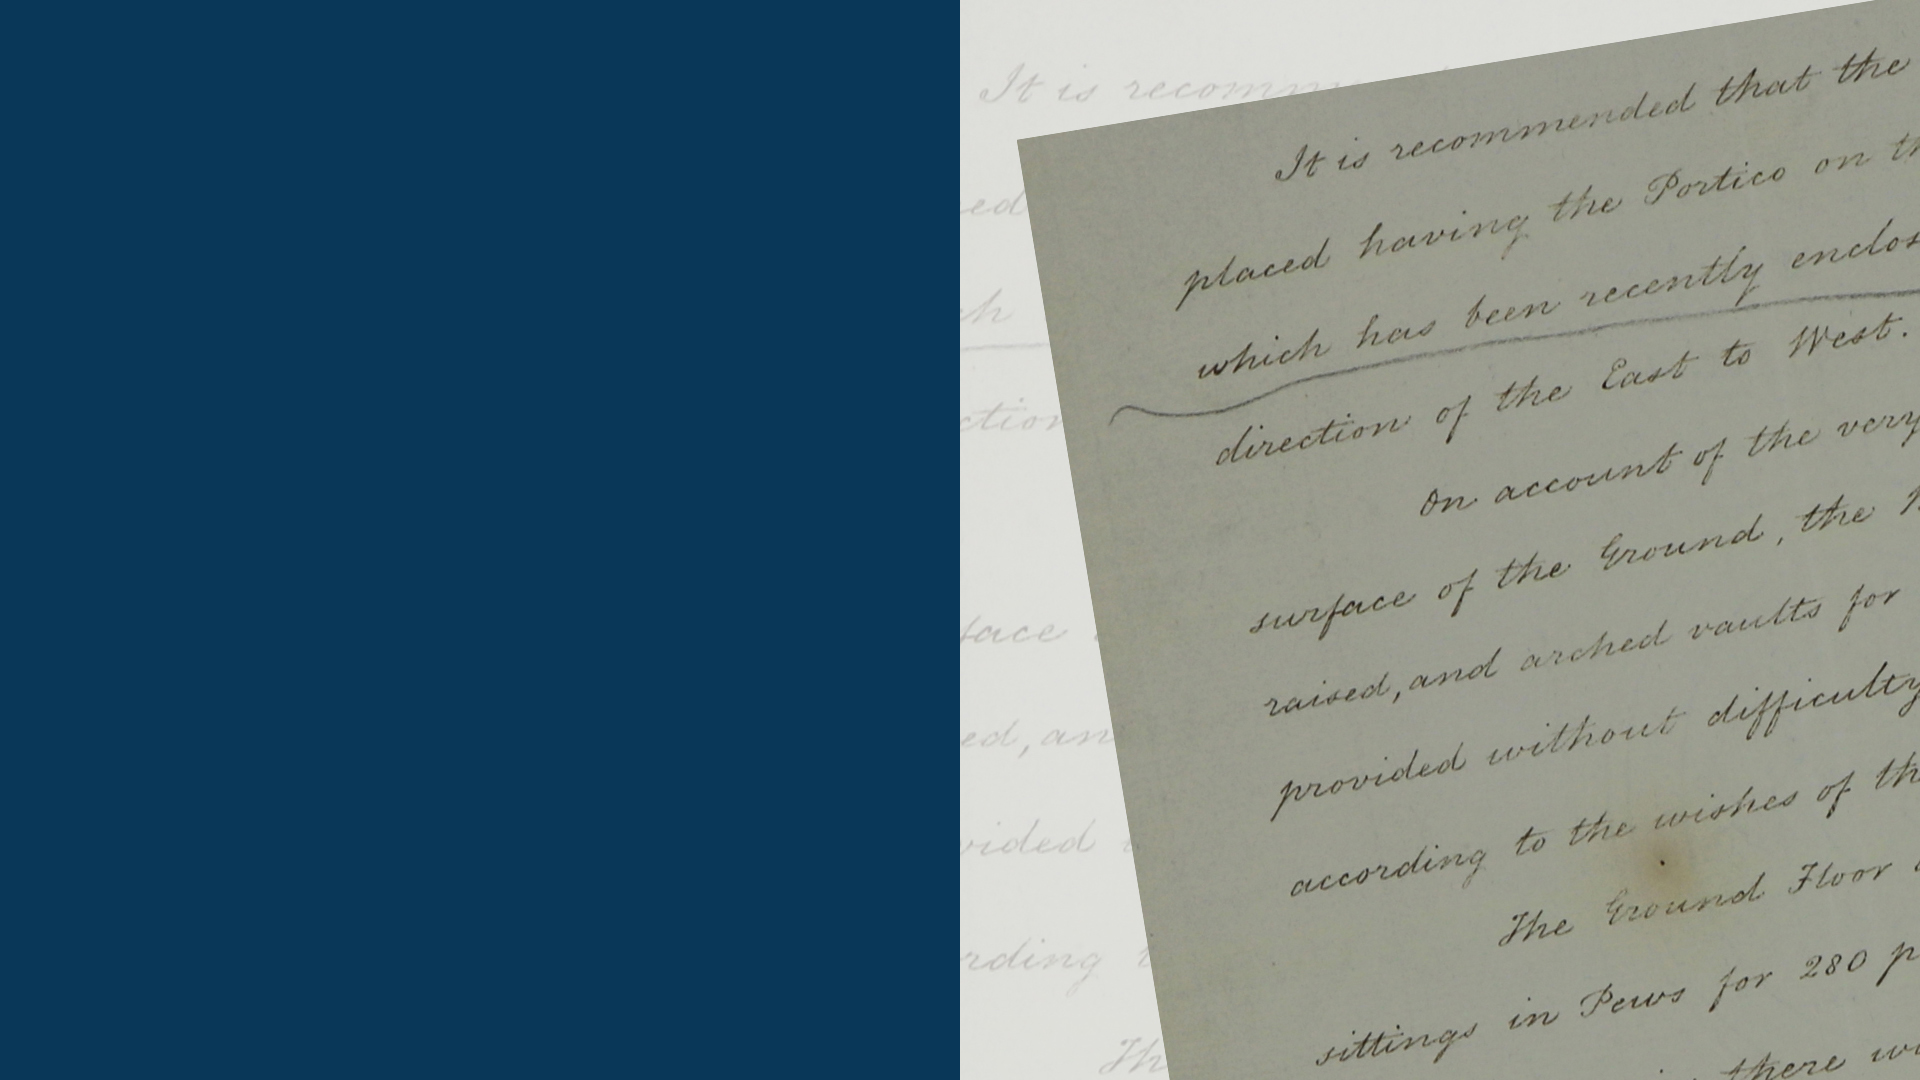 It is recommended that the
placed having the Portico on
which has been recently
direction of the East to West.
On account of the very
surface of the Ground, the
raised, and arched vaults for
provided without difficulty
according to the wishes of
The Ground Floor
sittings in Pews for 280
there